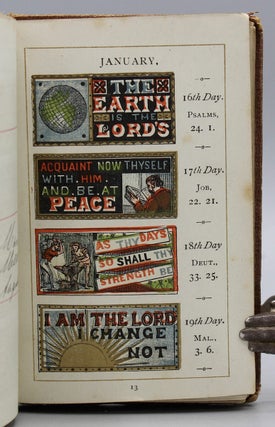 JANUARY.
THE
EARTH
IS THE
LORD'S
16th Day.
PSALMS,
24. 1.
ACQUAINT NOW THYSELF
WITH HIM
AND BE AT
PEACE
17th Day.
JOB,
22. 21.
AS THY DAYS
SO SHALL THY
STRENGTH BE
18th Day
DEUT.,
33. 25.
I AM THE LORD
I CHANGE
NOT
19th Day.
MAL.,
3. 6.
13